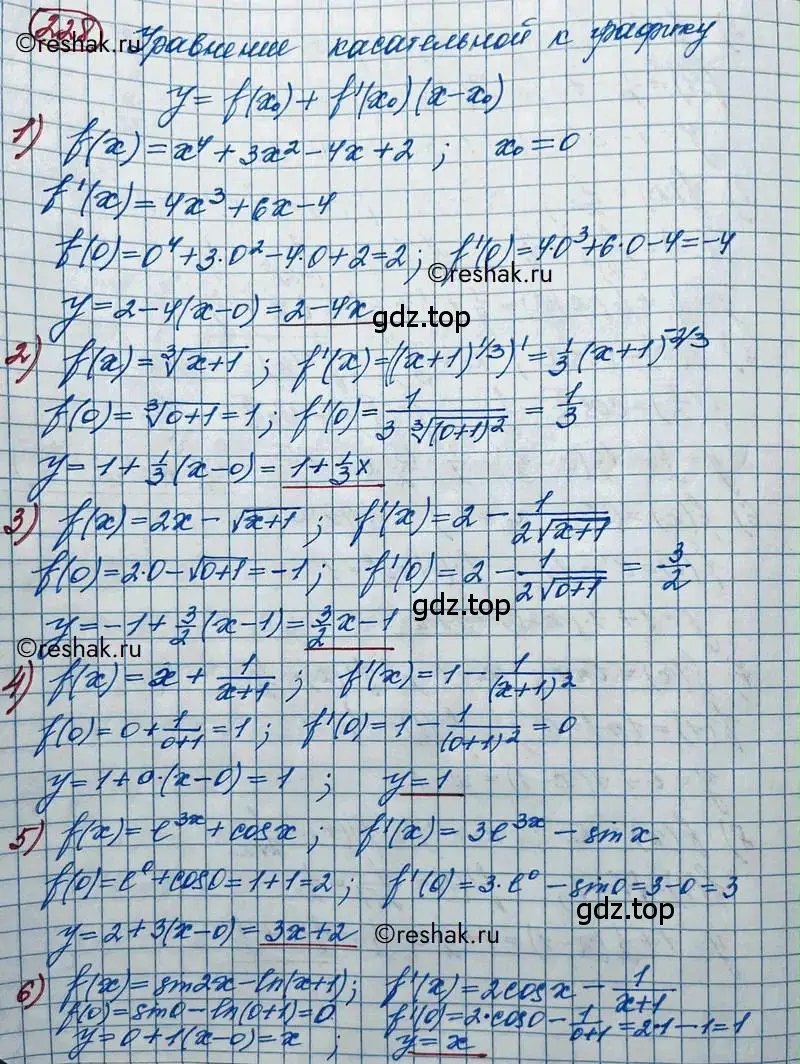 228
©reshak.ru
Уравнение касательной к графику
y = f(x₀) + f'(x₀)(x-x₀)
1) f(x) = x⁴ + 3x² - 4x + 2 ; x₀ = 0
f'(x) = 4x³ + 6x - 4
©reshak.ru
f(0) = 0⁴ + 3·0² - 4·0 + 2 = 2 ; f'(0) = 4·0³ + 6·0 - 4 = -4
y = 2 - 4(x-0) = 2 - 4x
gdz.top
2) f(x) = ∛(x+1) ; f'(x) = ((x+1)^1/3)' = 1/3 (x+1)^-2/3
f(0) = ∛(0+1) = 1 ; f'(0) = 1/(3 ∛((0+1)²)) = 1/3
y = 1 + 1/3 (x-0) = 1 + 1/3 x
3) f(x) = 2x - √(x+1) ; f'(x) = 2 - 1/(2√(x+1))
f(0) = 2·0 - √(0+1) = -1 ; f'(0) = 2 - 1/(2√(0+1)) = 3/2
gdz.top
y = -1 + 3/2 (x-1) = 3/2 x - 1
©reshak.ru
4) f(x) = x + 1/(x+1) ; f'(x) = 1 - 1/(x+1)²
f(0) = 0 + 1/(0+1) = 1 ; f'(0) = 1 - 1/(0+1)² = 0
y = 1 + 0·(x-0) = 1 ; y = 1
5) f(x) = e^3x + cosx ; f'(x) = 3e^3x - sinx
f(0) = e⁰ + cos0 = 1+1 = 2 ; f'(0) = 3·e⁰ - sin0 = 3-0 = 3
gdz.top
y = 2 + 3(x-0) = 3x + 2
©reshak.ru
6) f(x) = sin2x - ln(x+1) ; f'(x) = 2cosx - 1/(x+1)
f(0) = sin0 - ln(0+1) = 0 f'(0) = 2·cos0 - 1/(0+1) = 2·1 - 1 = 1
y = 0 + 1(x-0) = x ; y = x